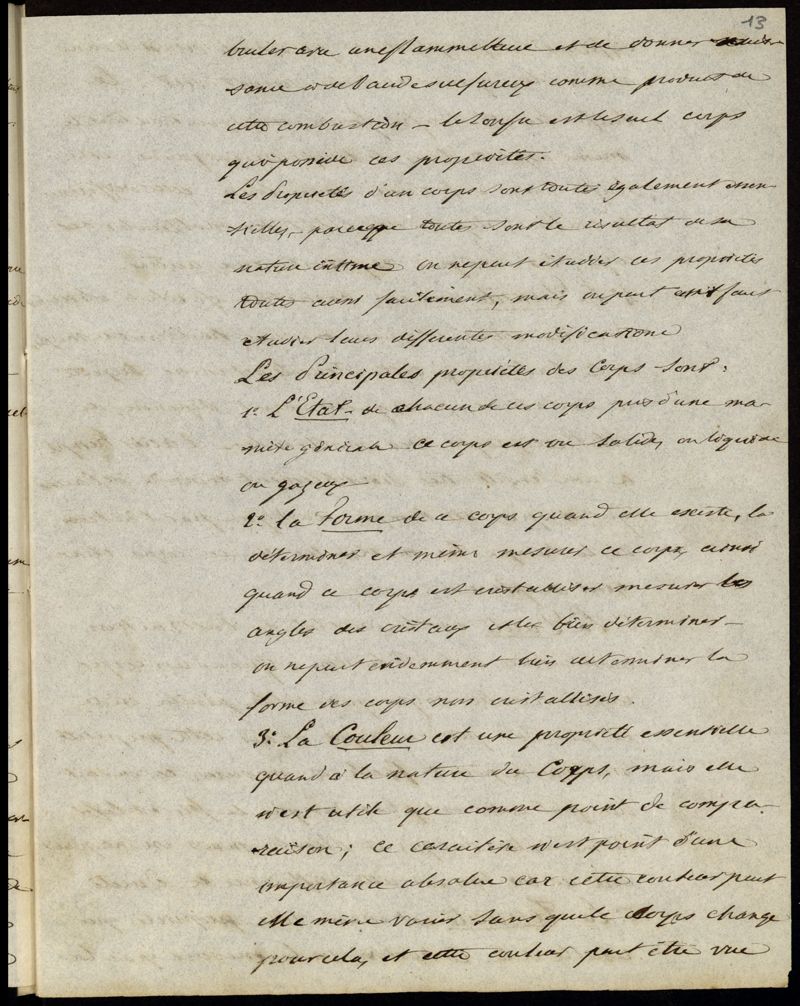 13
bruler avec une flamme bleue et de donner nais-
sance a de l'acide sulfureux comme produit de
cette combustion - le soufre est le seul corps
qui possède ces propriétés.
Les Propriétés d'un corps sont toutes également essen-
tielles, parceque toutes sont le résultat de sa
nature intime on ne peut étudier ces propriétés
toutes aussi facilement, mais on peut
étudier leurs différentes modifications
Les Principales propriétés des Corps sont:
1º L'Etat - de chacun de ces corps pris d'une ma-
nière générale ce corps est ou solide, ou liquide
ou gazeux
2º la Forme de ce corps quand elle existe, la
déterminer et même mesurer ce corps, ainsi
quand ce corps est cristalliser mesurer les
angles des cristaux et les bien déterminer -
on ne peut évidemment bien déterminer la
forme des corps non cristallisés.
3º La Couleur est une propriété essentielle
quand à la nature du Corps, mais elle
n'est utile que comme point de compa-
raison; ce caractère n'est point d'une
importance absolue car cette couleur peut
elle même varier sans que le Corps change
pour cela, et cette couleur peut être vue